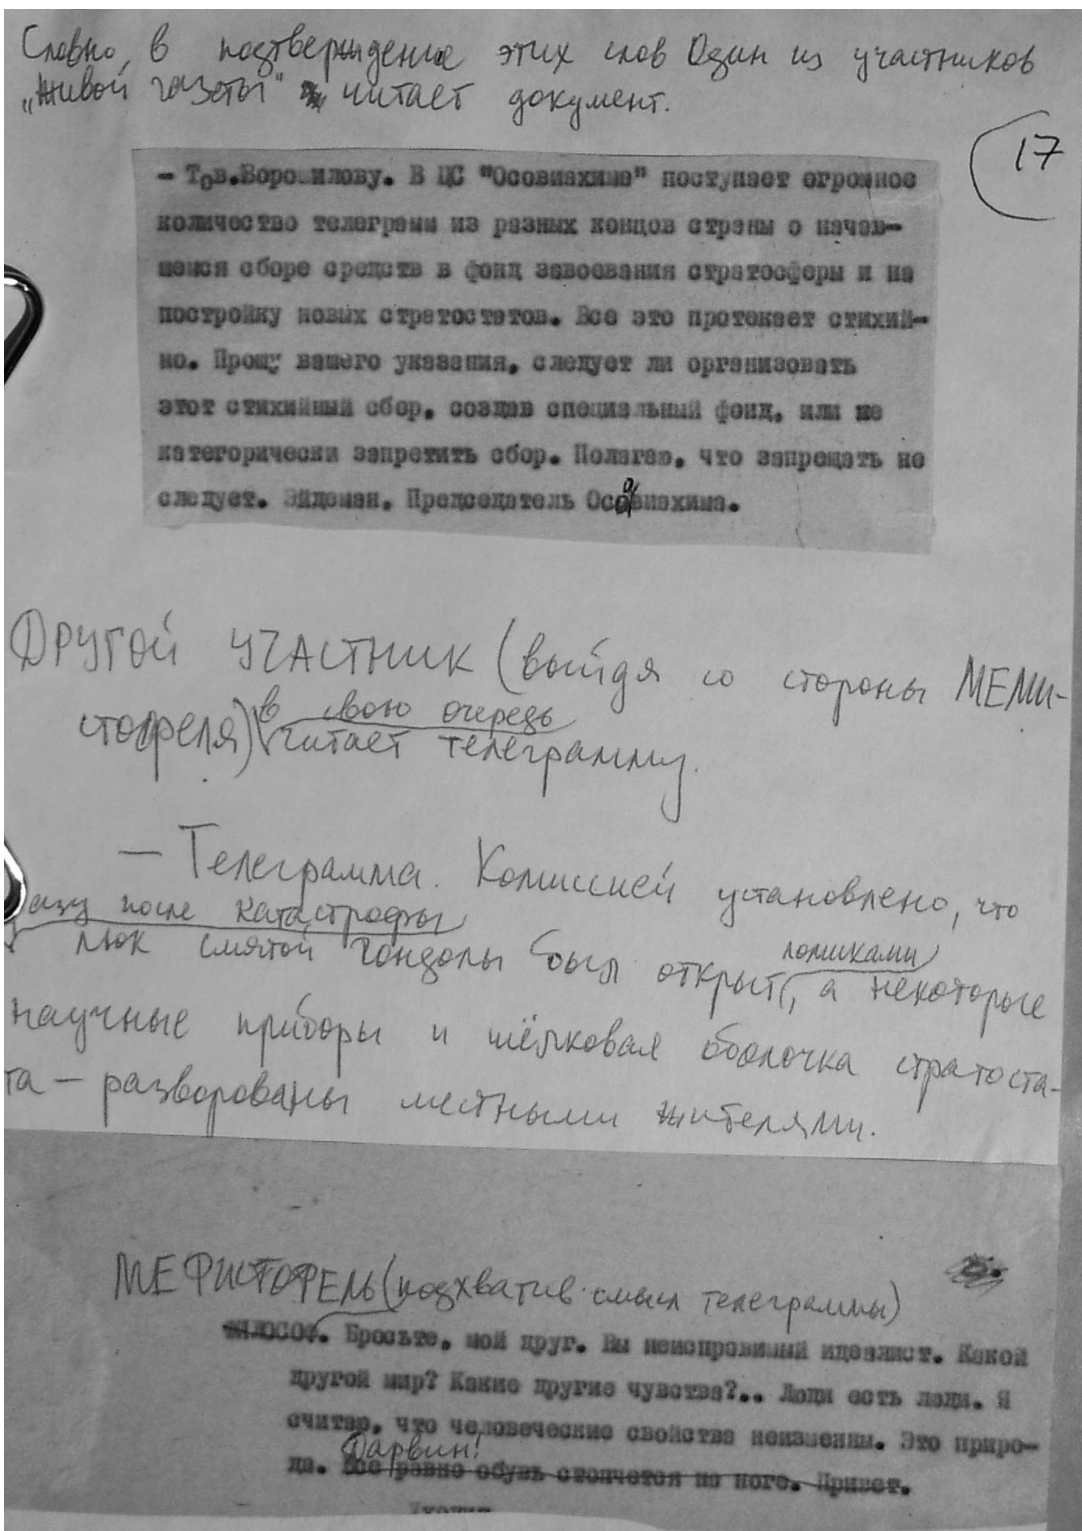 Словно, в подтверждение этих слов Один из участников
„Живой газеты" читает документ.
17
- Тов.Ворошилову. В ЦС "Осовиахима" поступает огромное
количество телеграмм из разных концов страны о начав-
шемся сборе средств в фонд завоевания стратосферы и на
постройку новых стратостатов. Все это протекает стихий-
но. Прошу вашего указания, следует ли организовать
этот стихийный сбор, создав специальный фонд, или же
категорически запретить сбор. Полагаю, что запрещать не
следует. Эйдеман. Председатель Осоавиахима.
ДРУГОЙ УЧАСТНИК (выйдя со стороны МЕФИ-
стофеля) в свою очередь
читает телеграмму.
— Телеграмма. Комиссией установлено, что
сразу после катастрофы
люк смятой гондолы был открыт ломиками, а некоторые
научные приборы и шёлковая оболочка стратоста-
та — разворованы местными жителями.
МЕФИСТОФЕЛЬ (подхватив смысл телеграммы)
ФИЛОСОФ. Бросьте, мой друг. Вы неисправимый идеалист. Какой
другой мир? Какие другие чувства?.. Люди есть люди. Я
считаю, что человеческие свойства неизменны. Это приро-
Дарвин!
да. Все равно обувь стопчется по ноге. Привет.